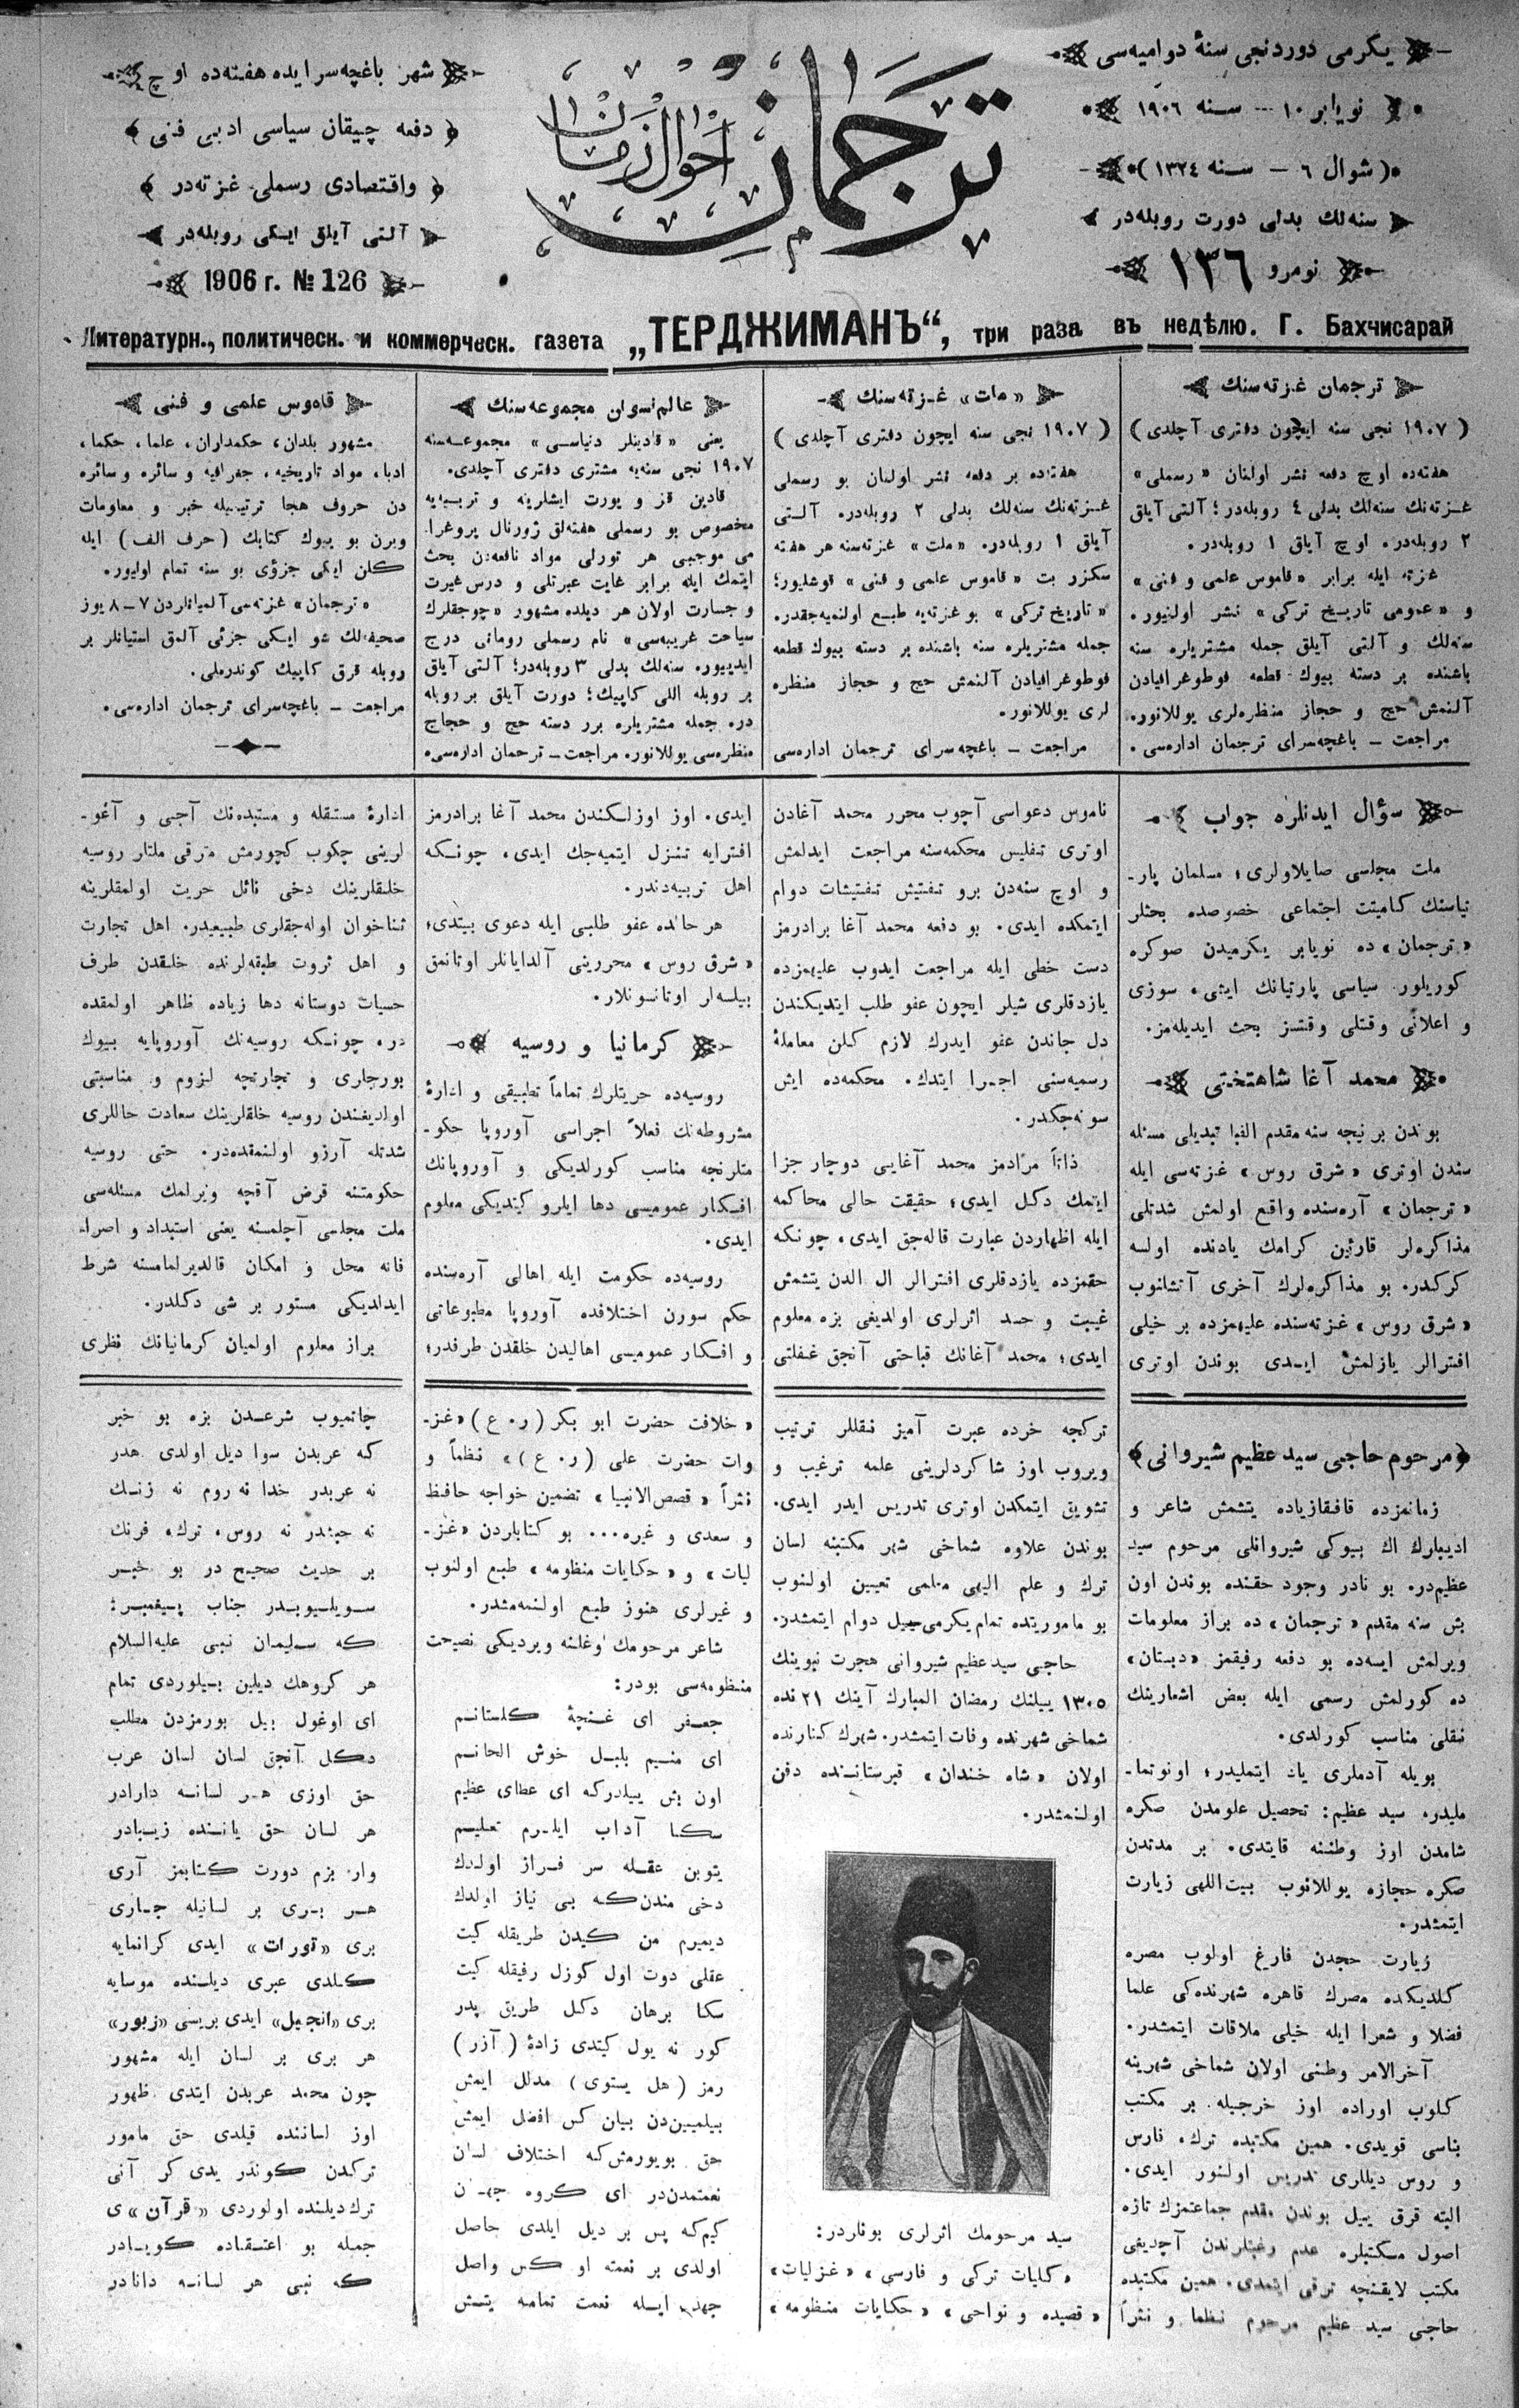 يكرمى دوردنجى سنهٔ دواميه‌سى
نويابر ١٠ --- سـنه ١٩٠٦
(شوال ٦ — سـنه ١٣٢٤)
سنه‌لك بدلى دورت روبله‌در
نومرو ١٣٦
ترجمان
احوال زمان
شهر باغچه‌سرايده هفته‌ده اوچ
دفعه چيقان سياسى ادبى فنى
واقتصادى رسملى غزته‌در
آلتى آيلق ايكى روبله‌در
1906 г. № 126
Литературн., политическ. и коммерческ. газета „ТЕРДЖИМАНЪ“, три раза въ недѣлю. Г. Бахчисарай
ترجمان غزته‌سنك
(١٩٠٧ نجى سنه ايچون دفترى آچلدى)
هفته‌ده اوچ دفعه نشر اولنان «رسملى»
غـزته‌نك سنه‌لك بدلى ٤ روبله‌در؛ آلتى آيلق
٢ روبله‌در. اوچ آيلق ١ روبله‌در.
غزته ايله برابر «قاموس علمى و فنى»
و «عمومى تاريـخ تركى» نشر اولنيور.
سنه‌لك و آلتى آيلق جمله مشتريلره سنه
باشنده بر دسته بيوك قطعه فوطوغرافيادن
آلنمش حج و حجاز منظره‌لرى يوللانور.
مراجعت — باغچه‌سراى ترجمان اداره‌سى.
«ملت» غـزته‌سنك
(١٩٠٧ نجى سنه ايچون دفترى آچلدى)
هفته‌ده بر دفعه نشر اولنان بو رسملى
غـزته‌نك سنه‌لك بدلى ٢ روبله‌در. آلـتى
آيلق ١ روبله‌در. «ملت» غزته‌سنه هر هفته
سكزر بت «قاموس علمى و فنى» قوشليور؛
«تاريخ تركى» بو غزته‌يه طبع اولنميه‌جقدر.
جمله مشتريلره سنه باشنده بر دسته بيوك قطعه
فوطوغرافيادن آلنمش حج و حجاز منظره
لرى يوللانور.
مراجعت — باغچه‌سراى ترجمان اداره‌سى
عالم نسوان مجموعه‌سنك
يعنى «قادينلر دنياسـى» مجموعـه‌سنه
١٩٠٧ نجى سنه‌يه مشترى دفترى آچلدى.
قادين قز و يورت ايشلرينه و تربيه‌يه
مخصوص بو رسملى هفته‌لق ژورنال پروغرا‌
مى موجبى هر تورلى مواد نافعه‌دن بحث
ايتمك ايله برابر غايت عبرتلى و درس غيرت
و جسارت اولان هر ديلده مشهور «چوجقلرك
سياحت غريبه‌سى» نام رسملى رومانى درج
ايدييور. سنه‌لك بدلى ٣ روبله‌در؛ آلتى آيلق
بر روبله اللى كاپيك؛ دورت آيلق بر روبله
در. جمله مشتريلره برر دسته حج و حجاج
منظره‌سى يوللانور. مراجعت — ترجمان اداره‌سى.
قاموس علمى و فنى
مشهور بلدان، حكمداران، علما، حكما،
ادبا، مواد تاريخيه، جغرافيه و سائره و سائره
دن حروف هجا ترتيبيله خبر و معلومات
ويرن بو بيوك كتابك (حرف الف) ايله
كلن ايكى جزؤى بو سنه تمام اولیور.
«ترجمان» غزته‌سى آلميانلردن ٧–٨ يوز
صحيفه‌لك شو ايكى جزئى آلمق استيانلر بر
روبله قرق كاپيك كوندرملى.
مراجعت — باغچه‌سراى ترجمان اداره‌سى.
سؤال ايدنلره جواب
ملت مجلسى صايلاولرى؛ مسلمان پار‌ـ
تياسنك كاميتت اجتماعى خصوصده بحثلر
«ترجمان» ده نويابر يكرميدن صوكره
كوريلور. سياسى پارتيانك ايشى، سوزى
و اعلانى وقتلى وقتسز بحث ايديله‌مز.
محمد آغا شاهتختى
بوندن بر نيجه سنه مقدم الفبا تبديلى مسئله
سندن اوترى «شرق روس» غزته‌سى ايله
«ترجمان» آره‌سنده واقع اولمش شدتلى
مذاكره‌لر قارئين كرامك يادنده اولسه
كركدر. بو مذاكره‌لرك آخرى آتشلنوب
«شرق روس» غـزته‌سنده عليهمزده بر خيلى
افترالر يازلمش ايـدى بوندن اوترى
ناموس دعواسى آچوب محرر محمد آغادن
اوترى تفليس محكمه‌سنه مراجعت ايدلمش
و اوچ سنه‌دن برو تفتيش تفتيشات دوام
ايتمكده ايدى. بو دفعه محمد آغا برادرمز
دست خطى ايله مراجعت ايدوب عليهمزده
يازدقلرى شيلر ايچون عفو طلب ايتديكندن
دل جاندن عفو ايدرك لازم كلن معاملهٔ
رسميه‌سنى اجـرا ايتدك. محكمه‌ده ايش
سونه‌جكدر.
ذاتاً مرادمز محمد آغايى دوچار جزا
ايتمك دكل ايدى؛ حقيقت حالى محاكمه
ايله اظهاردن عبارت قاله‌جق ايدى، چونكه
حقمزده يازدقلرى افترالر ال الدن يتشمش
غيبت و حسد اثرلرى اولديغى بزه معلوم
ايدى؛ محمد آغانك قباحتى آنجق غفلتى
ايدى. اوز اوزلـكندن محمد آغا برادرمز
افترايه تنزل ايتميه‌جك ايدى، چونـكـه
اهل تربيه‌دندر.
هر حالده عفو طلبى ايله دعوى بيتدى؛
«شرق روس» محررينى آلدايانلر اوتانمق
بيلسه‌لر اوتانسونلار.
كرمانيا و روسيه
روسيه‌ده حريتلرك تماماً تطبيقى و ادارهٔ
مشروطه‌نك فعلاً اجراسى آوروپا حكو‌ـ
متلرنجه مناسب كورلديكى و آوروپانك
افـكار عموميسى دها ايلرو كيتديكى معلوم
ايدى.
روسيه‌ده حكومت ايله اهالى آره‌سنده
حكم سورن اختلافده آوروپا مطبوعاتى
و افـكار عموميسى اهاليدن خلقدن طرفدر؛
ادارهٔ مستقله و مستبده‌نك آجى و آغو‌ـ
لرينى چكوب كچورمش مترقى ملتلر روسيه
خلـقلرينك دخى نائل حريت اولمقلرينه
ثناخوان اوله‌جقلرى طبيعيدر. اهل تجارت
و اهل ثروت طبقه‌لرنده خلقدن طرف
حسيات دوستانه دها زياده ظاهر اولمقده
در، چونـكه روسيه‌نك آوروپايه بيوك
بورجلرى و تجارتجه لزوم و مناسبتى
اولديغندن روسيه خلقلرينك سعادت حاللرى
شدتله آرزو اولنمقده‌در. حتى روسيه
حكومتنه قرض آقچه ويرلمك مسئله‌سى
ملت مجلسى آچلمسنه يعنى استبداد و اصرا‌ـ
فانه محل و امكان قالديرلمامسنه شرط
ايدلديكى مستور بر شى دكلدر.
براز معلوم اولميان كرمانيانك نظرى
مرحوم حاجى سيد عظيم شيروانى
زمانمزده قافقازياده يتشمش شاعر و
اديبلرك اك بيوكى شيروانلى مرحوم سيد
عظيم‌در. بو نادر وجود حقنده بوندن اون
بش سنه مقدم «ترجمان» ده براز معلومات
ويرلمش ايسه‌ده بو دفعه رفيقمز «دبستان»
ده كورلمش رسمى ايله بعض اشعارينك
نقلى مناسب كورلدى.
بويله آدملرى ياد ايتمليدر؛ اونوتما‌ـ
مليدر. سيد عظيم: تحصيل علومدن صكره
شامدن اوز وطننه قايتدى. بر مدتدن
صكره حجازه يوللانوب بيت‌اللهى زيارت
ايتمشدر.
زيارت حجدن فارغ اولوب مصره
كلديكده مصرك قاهره شهرنده‌كى علما
فضلا و شعرا ايله خيلى ملاقات ايتمشدر.
آخرالامر وطنى اولان شماخى شهرينه
كلوب اوراده اوز خرجيله بر مكتب
بناسى قويدى. همين مكتبده ترك، فارس
و روس ديللرى تدريس اولنور ايدى.
البته قرق ييل بوندن مقدم جماعتمزك تازه
اصول مـكتبلره عدم رغبتلرندن آچديغى
مكتب لايقنجه ترقى ايتمدى. همين مكتبده
حاجى سيد عظيم مرحوم نـظما و نثراً
تركجه خرده عبرت آميز نـقللر ترتيب
ويروب اوز شاكردلرينى علمه ترغيب و
تشويق ايتمكدن اوترى تدريس ايدر ايدى.
بوندن علاوه شماخى شهر مكتبنه لسان
ترك و علم الهى معلمى تعيين اولنوب
بو مأموريتده تمام يكرمى ييل دوام ايتمشدر.
حاجى سيد عظيم شيروانى هجرت نبوينك
١٣٠٥ ييلنك رمضان المبارك آينك ٢١ نده
شماخى شهرنده وفات ايتمشدر. شهرك كنارنده
اولان «شاه خندان» قبرستانـنده دفن
اولنمشدر.
سيد مرحومك اثرلرى بونلردر:
«كليات تركى و فارسى» «غـزليات»
«قصيده و نواحى» «حكايات منظومه»
«خلافت حضرت ابو بكر (ر. ع)» «غـز‌ـ
وات حضرت على (ر. ع)» نـظماً و
نثراً «قصص الانبيا» تضمين خواجه حافظ
و سعدى و غيره... بو كتابلردن «غـز‌ـ
ليات» و «حكايات منظومه» طبع اولنوب
و غيرلرى هنوز طبع اولنمه‌مشدر.
شاعر مرحومك اوغلنه ويرديكى نصيحت
منظومه‌سى بودر:
جعـفر اى غـنچهٔ كلستانـم
اى منـيم بلبـل خوش الحانـم
اون بش ييلدركه اى عطاى عظيم
سكـا آداب ايلـرم تعليـم
يتوبن عقـله سر فـراز اولدك
دخى مندن كـه بى نياز اولدك
ديميرم من كيدن طريقله كيت
عقلى دوت اول كوزل رفيقله كيت
سكا برهان دكل طريق پدر
كور نه يول كيتدى زادهٔ (آزر)
رمز (هل يستوى) مدلل ايمش
بيلمييندن بيلن كس افضل ايمش
حق بويورمش كه اختلاف لسان
نعمتمدن‌در اى كروه جهـان
كيم‌كه پس بر ديل ايلدى حاصل
اولدى بر نعمته او كس واصل
جهد ايـله نعمت تمامـه يتـش
چاتميوب شرعـدن بزه بو خبر
كه عربدن سوا ديل اولدى هدر
نه عربدر خدا نه روم نه زنـك
نه حبشدر نه روس، ترك، فرنك
بر حديث صحيح در بو خبـر
سـويلـيوبـدر جناب پـيغمبـر:
كه سـليمان نبى عليه‌السلام
هر كروهك ديلين بـيلوردى تمام
اى اوغول بيل بو رمزدن مطلب
دكل آنجق لسان لسان عرب
حق اوزى هـر لسانـه دارادر
هر لسان حق يانـنده زيبـادر
وار بزم دورت كـتابمز آرى
هـر بـرى بر لسانيله جـارى
برى «تورات» ايدى كرانمايه
كـلدى عبرى ديلـنده موسايه
برى «انجيل» ايدى بريسى «زبور»
هر برى بر لسان ايله مشهور
چون محمد عربدن ايتدى ظهور
اوز لساننده قيلدى حق مامور
تركدن كـوندريدى كر آنى
ترك ديلنده اولوردى «قرآن»ى
جمله بو اعتـقاده كويـادر
كـه نبى هر لسانـه دانادر